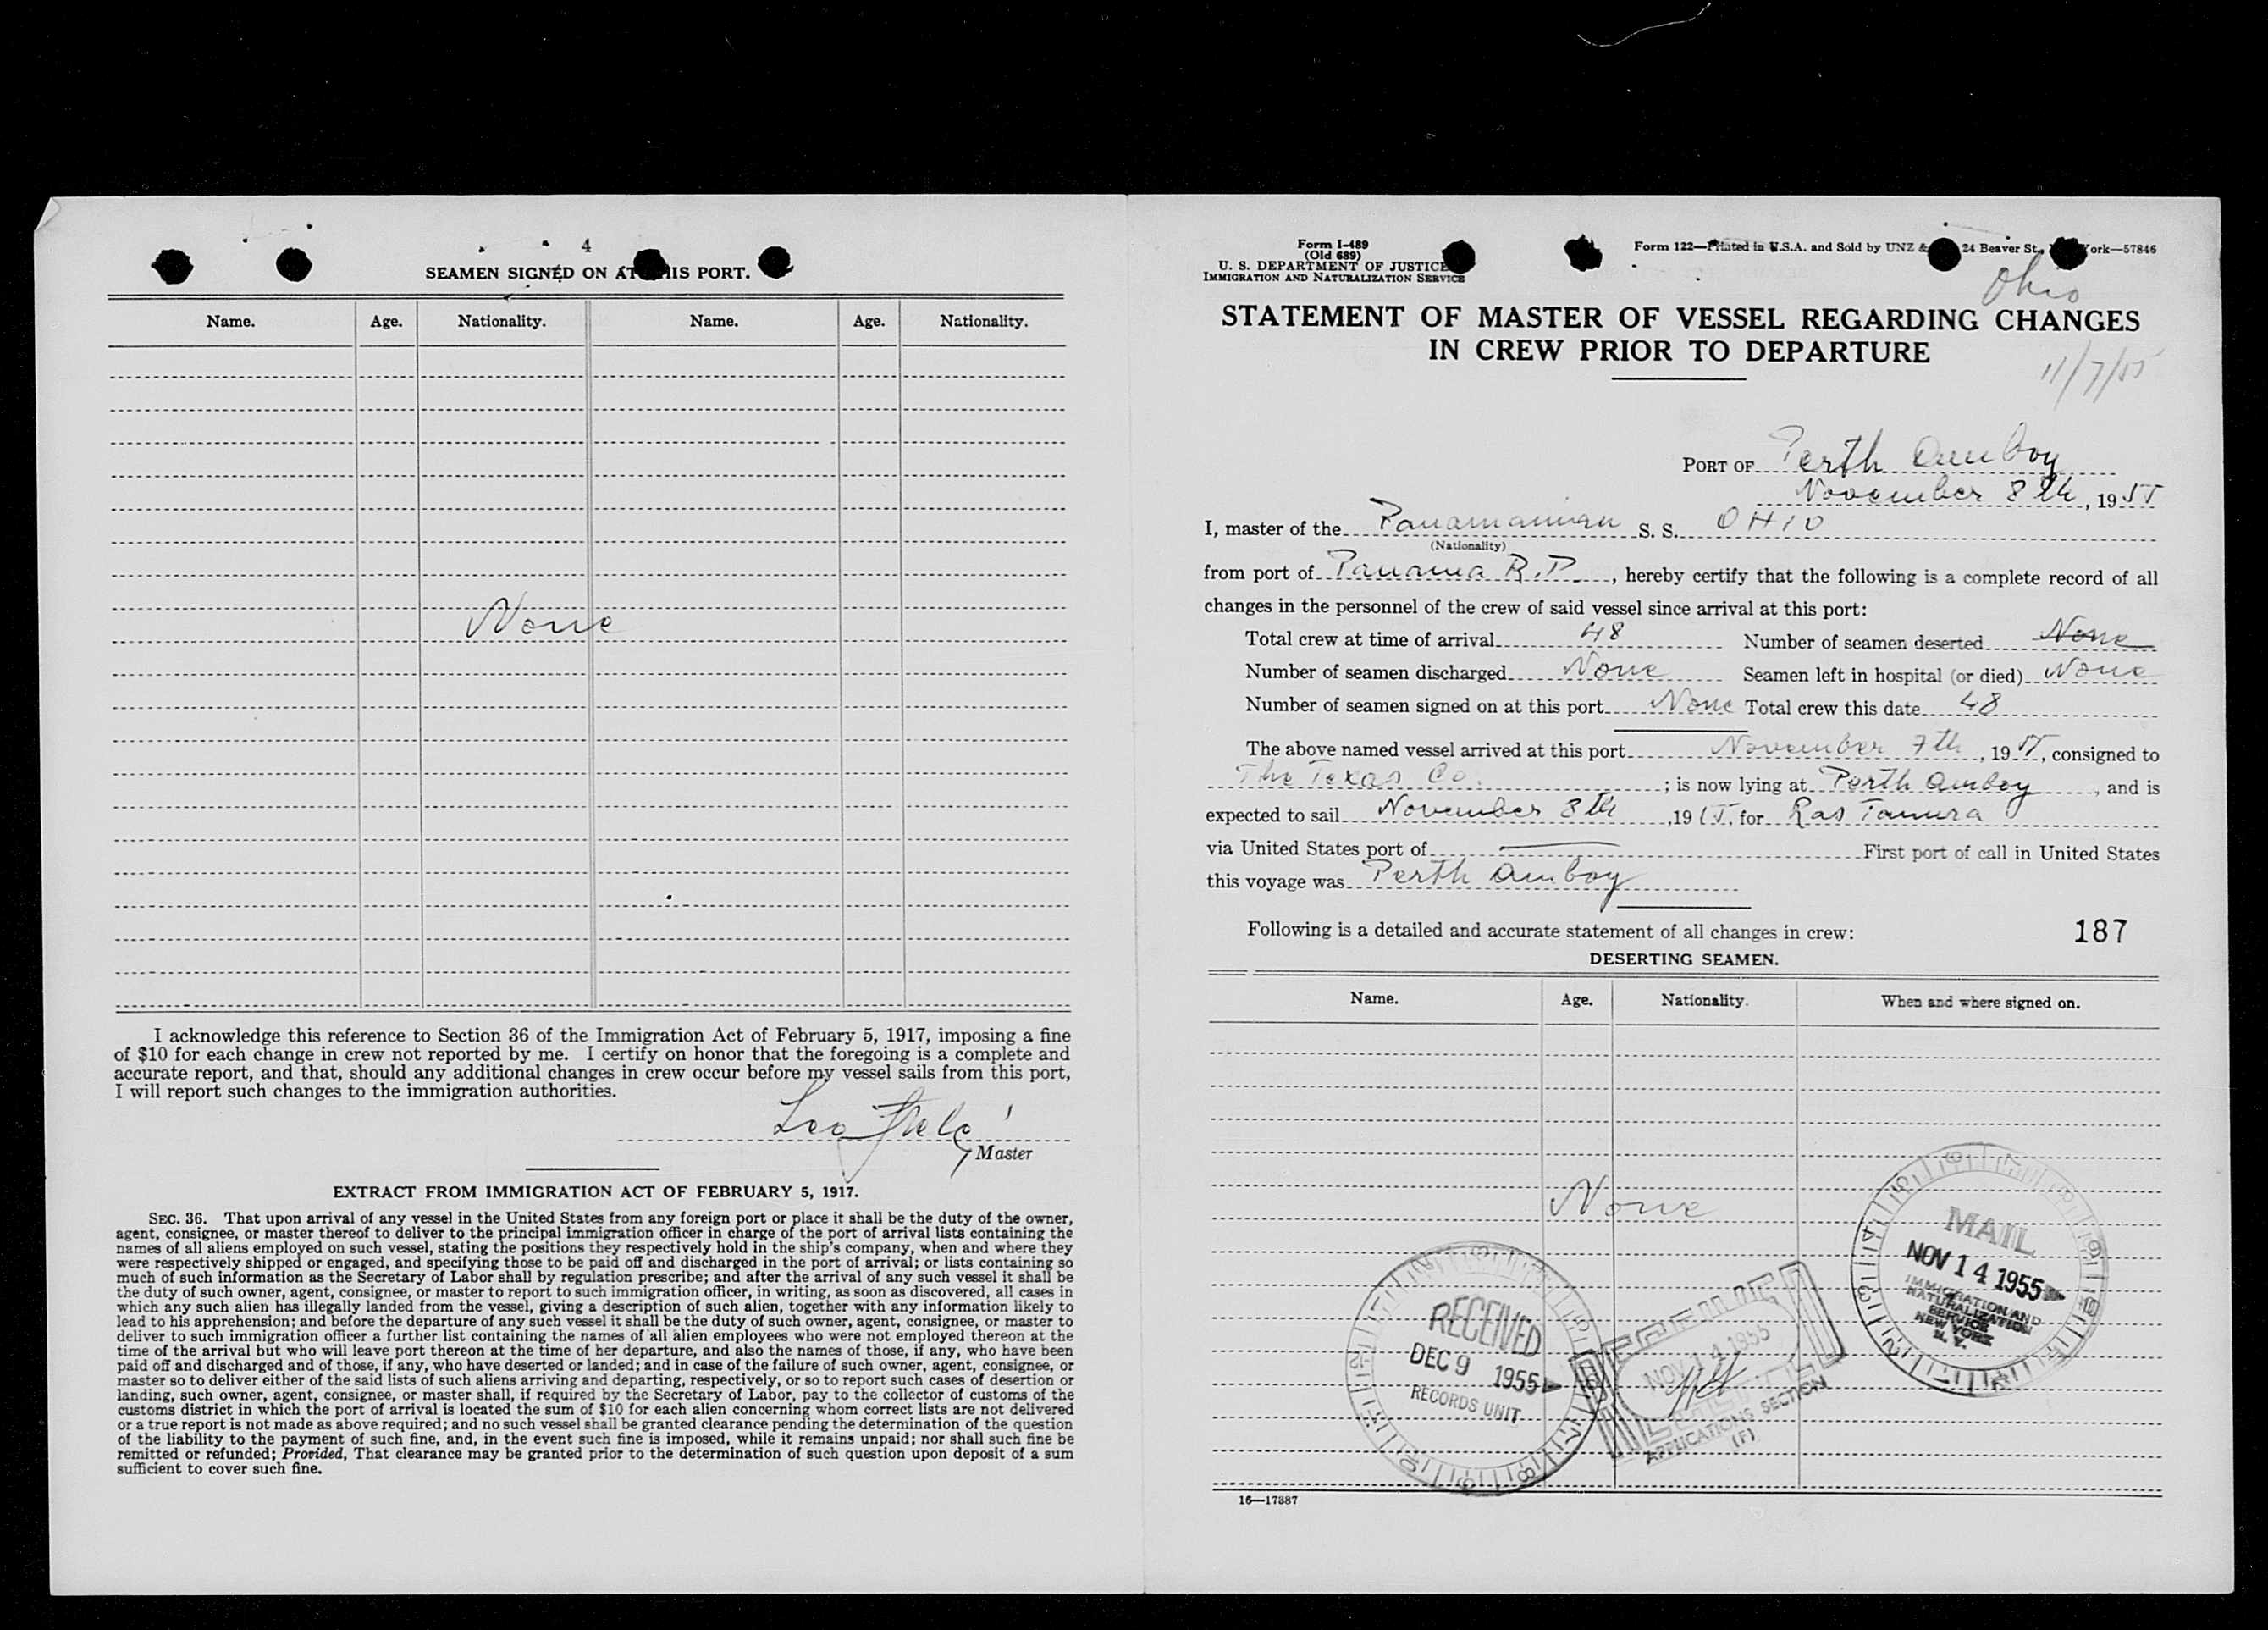 4
SEAMEN SIGNED ON AT THIS PORT.
Name. Age. Nationality. Name. Age. Nationality.
None
I acknowledge this reference to Section 36 of the Immigration Act of February 5, 1917, imposing a fine
of $10 for each change in crew not reported by me. I certify on honor that the foregoing is a complete and
accurate report, and that, should any additional changes in crew occur before my vessel sails from this port,
I will report such changes to the immigration authorities.
Leo
Master
EXTRACT FROM IMMIGRATION ACT OF FEBRUARY 5, 1917.
SEC. 36. That upon arrival of any vessel in the United States from any foreign port or place it shall be the duty of the owner,
agent, consignee, or master thereof to deliver to the principal immigration officer in charge of the port of arrival lists containing the
names of all aliens employed on such vessel, stating the positions they respectively hold in the ship's company, when and where they
were respectively shipped or engaged, and specifying those to be paid off and discharged in the port of arrival; or lists containing so
much of such information as the Secretary of Labor shall by regulation prescribe; and after the arrival of any such vessel it shall be
the duty of such owner, agent, consignee, or master to report to such immigration officer, in writing, as soon as discovered, all cases in
which any such alien has illegally landed from the vessel, giving a description of such alien, together with any information likely to
lead to his apprehension; and before the departure of any such vessel it shall be the duty of such owner, agent, consignee, or master to
deliver to such immigration officer a further list containing the names of all alien employees who were not employed thereon at the
time of the arrival but who will leave port thereon at the time of her departure, and also the names of those, if any, who have been
paid off and discharged and of those, if any, who have deserted or landed; and in case of the failure of such owner, agent, consignee, or
master so to deliver either of the said lists of such aliens arriving and departing, respectively, or so to report such cases of desertion or
landing, such owner, agent, consignee, or master shall, if required by the Secretary of Labor, pay to the collector of customs of the
customs district in which the port of arrival is located the sum of $10 for each alien concerning whom correct lists are not delivered
or a true report is not made as above required; and no such vessel shall be granted clearance pending the determination of the question
of the liability to the payment of such fine, and, in the event such fine is imposed, while it remains unpaid; nor shall such fine be
remitted or refunded; Provided, That clearance may be granted prior to the determination of such question upon deposit of a sum
sufficient to cover such fine.
Form I-489
(Old 689)
U. S. DEPARTMENT OF JUSTICE
IMMIGRATION AND NATURALIZATION SERVICE
Form 122—Printed in U.S.A. and Sold by UNZ & 24 Beaver St., York—57846
Ohio
STATEMENT OF MASTER OF VESSEL REGARDING CHANGES
IN CREW PRIOR TO DEPARTURE
11/7/55
PORT OF Perth Amboy
November 8th, 1955
I, master of the Panamanian S. S. OHIO
(Nationality)
from port of Panama R.P., hereby certify that the following is a complete record of all
changes in the personnel of the crew of said vessel since arrival at this port:
Total crew at time of arrival 48 Number of seamen deserted None
Number of seamen discharged None Seamen left in hospital (or died) None
Number of seamen signed on at this port None Total crew this date 48
The above named vessel arrived at this port November 7th, 1955, consigned to
The Texas Co. ; is now lying at Perth Amboy, and is
expected to sail November 8th, 1955, for Ras Tanura
via United States port of — First port of call in United States
this voyage was Perth Amboy
Following is a detailed and accurate statement of all changes in crew: 187
DESERTING SEAMEN.
Name. Age. Nationality. When and where signed on.
None
MAIL
NOV 14 1955
IMMIGRATION AND
NATURALIZATION
SERVICE
NEW YORK
N. Y.
RECEIVED
DEC 9 1955
RECORDS UNIT
NOV 14 1955
APPLICATIONS SECTION
(F)
16—17887